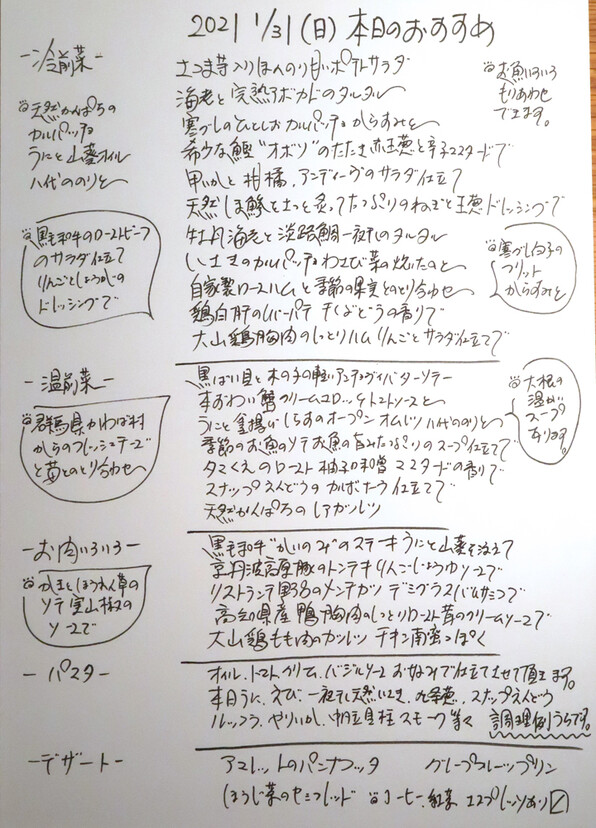 2021 1/31(日) 本日のおすすめ
-冷前菜-
さつま芋入りほんのり甘いポテトサラダ
海老と完熟アボカドのタルタル
寒ブリのひとしおカルパッチョ からすみと
希少な鰹"オボソ"のたたき 赤玉葱と辛子マスタードで
甲いかと柑橘、アンディーヴのサラダ仕立て
天然しま鯵をさっと炙って たっぷりのねぎと玉葱ドレッシングで
牡丹海老と淡路鯛一夜干しのタルタル
いさきのカルパッチョ わさび菜の
自家製ロースハムと季節の果実とのとり合わせ
鶏白肝のレバーパテ 干しぶどうの香りで
大山鶏胸肉のしっとりハム りんごとサラダ仕立てで
お魚いろいろ
もりあわせ
できます。
天然かんぱちの
カルパッチョ
うにと山葵オイル
八代ののりと
黒毛和牛のローストビーフ
のサラダ仕立て
りんごとしょうがの
ドレッシングで
寒ブリ白子の
フリット
からすみと
-温前菜-
黒ばい貝と木の子の軽いアンチョヴィバターソテー
本ずわい蟹クリームコロッケ トマトソースと
うにと釜揚げしらすのオープンオムレツ 八代ののりと
季節のお魚のソテー お魚の旨みたっぷりのスープ仕立てで
タマくえのロースト 柚子味噌マスタードの香りで
スナップえんどうのカルボナーラ仕立てで
天然かんぱちのレアカツレツ
群馬県かわば村
からのフレッシュチーズ
と苺とのとり合わせ
大根の
温かい
スープ
あります。
-お肉いろいろ-
黒毛和牛"かいのみ"のステーキ うにと山葵を添えて
京丹波高原豚のトンテキ りんごしょうゆソースで
リストランテ野呂のメンチカツ デミグラスバルサミコで
高知県産鴨胸肉のしっとりロースト 苺のクリームソースで
大山鶏もも肉のカツレツ チキン南蛮っぽく
かきとほうれん草の
ソテー 実山椒の
ソースで
-パスタ-
オイル、トマト、クリーム、バジルソース お好みで仕立てさせて頂きます。
本日うに、えび、一夜干し天然いさき、九条葱、スナップえんどう
ルッコラ、やりいか、帆立貝柱スモーク等々 調理例うらです。
-デザート-
アマレットのパンナコッタ グレープフルーツプリン
ほうじ茶のセミフレッド コーヒー、紅茶 エスプレッソあり